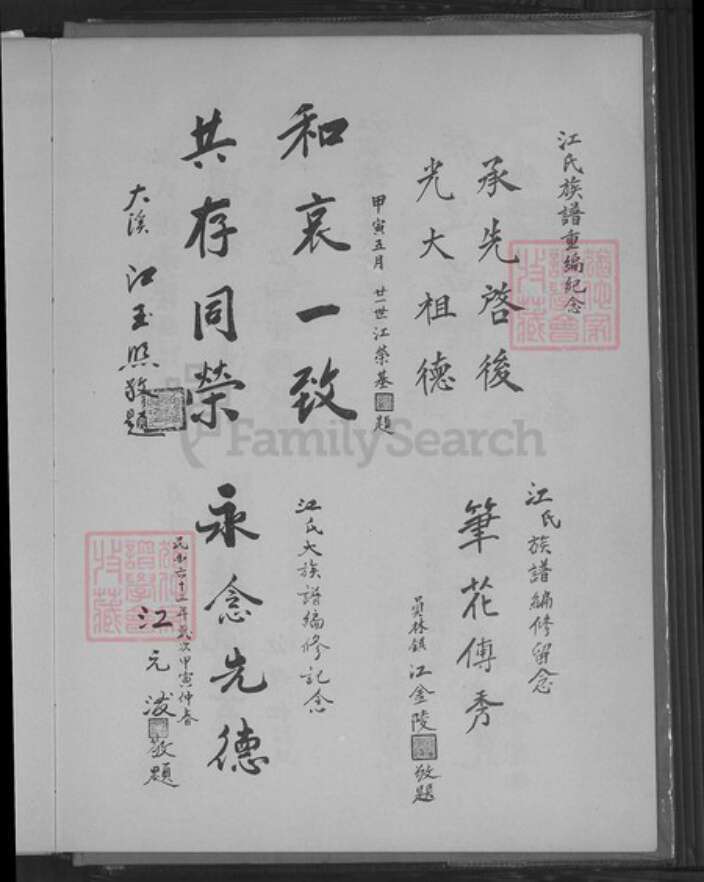 江氏族譜重編紀念
承先啓後
光大祖德
甲寅五月 廿一世江榮基 題
和衷一致
共存同榮
大溪 江玉照敬題
江氏族譜編修留念
筆花傳秀
員林鎮 江金陵 敬題
江氏大族譜編修記念
永念先德
民國六十三年歲次甲寅仲春
江元 敬題
FamilySearch